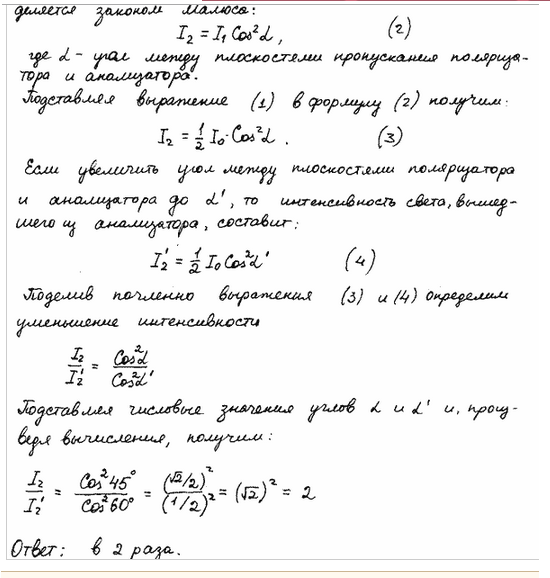 деляется законом Малюса:
I₂ = I₁ Cos²α, (2)
где α - угол между плоскостями пропускания поляриза-
тора и анализатора.
Подставляя выражение (1) в формулу (2) получим:
I₂ = 1/2 I₀·Cos²α. (3)
Если увеличить угол между плоскостями поляризатора
и анализатора до α', то интенсивность света, вышед-
шего из анализатора, составит:
I₂' = 1/2 I₀ Cos²α' (4)
Поделив почленно выражения (3) и (4) определим
уменьшение интенсивности
I₂/I₂' = Cos²α/Cos²α'
Подставляя числовые значения углов α и α' и, произ-
ведя вычисления, получим:
I₂/I₂' = Cos²45°/Cos²60° = (√2/2)²/(1/2)² = (√2)² = 2
Ответ: в 2 раза.